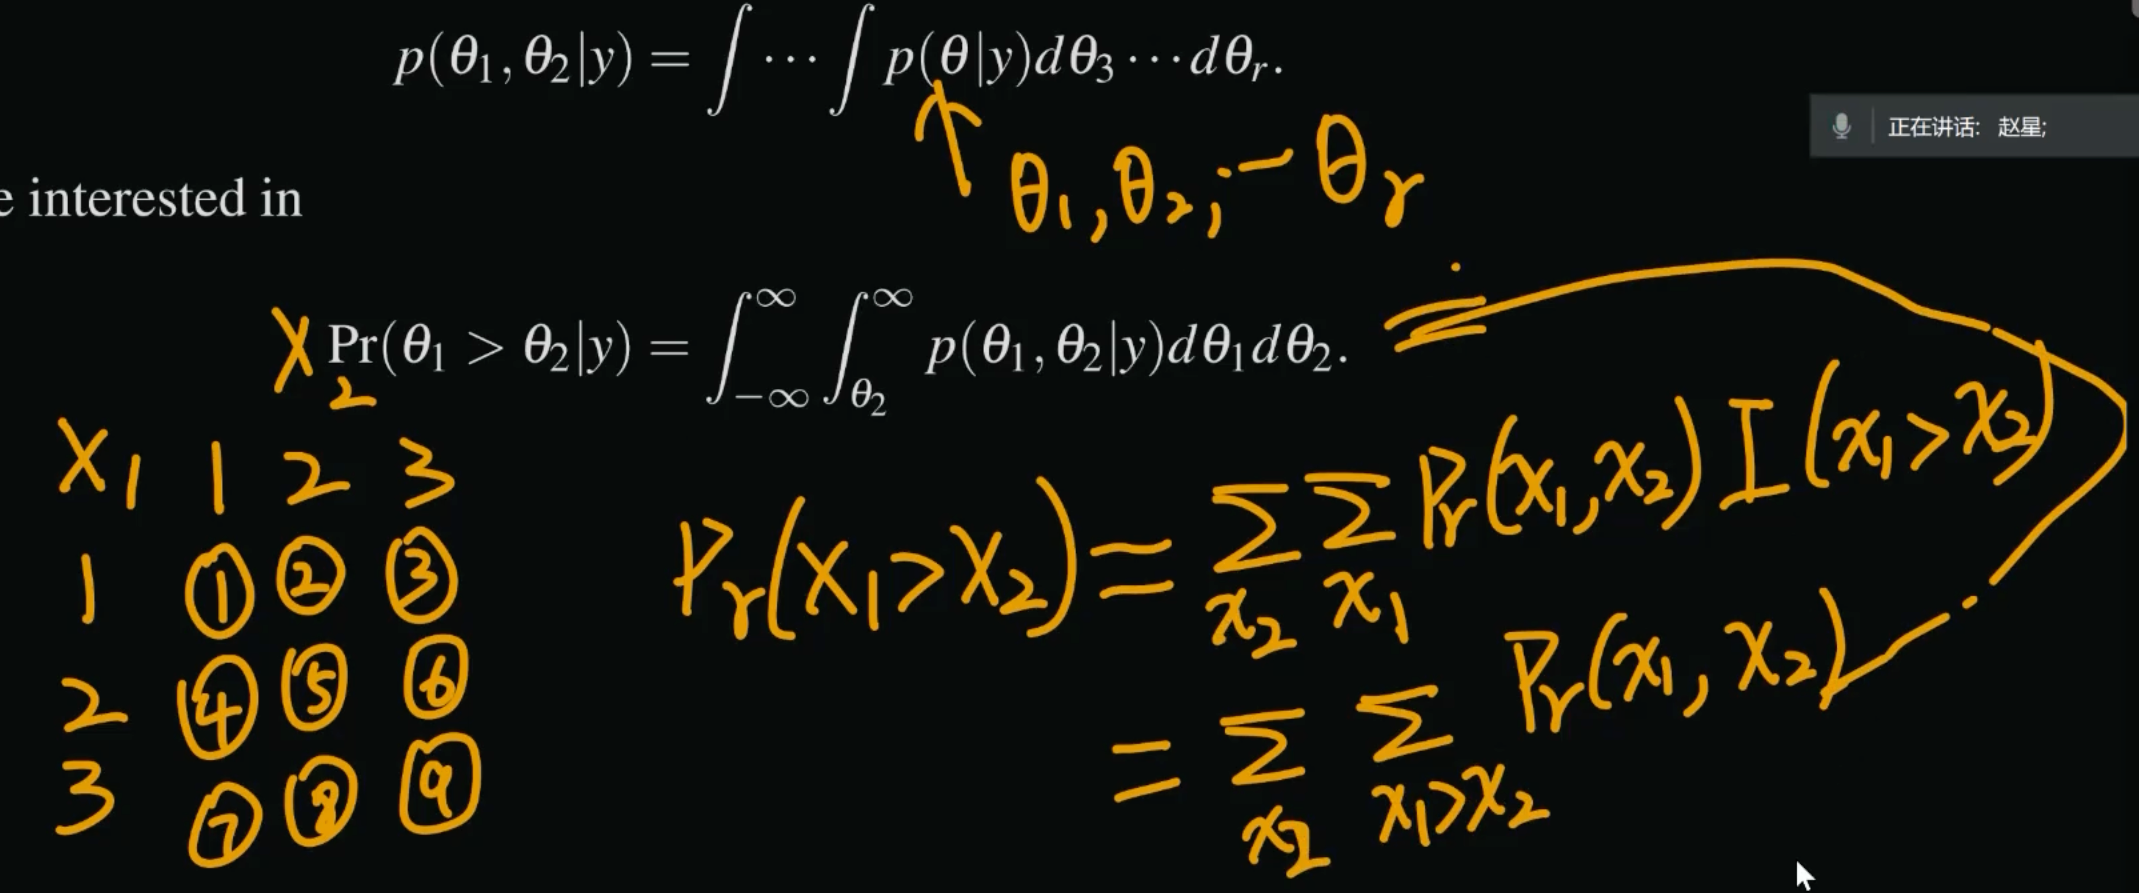 p(θ₁, θ₂|y) = ∫ ⋯ ∫ p(θ|y)dθ₃ ⋯ dθᵣ.
θ₁, θ₂, ⋯ θᵣ
正在讲话: 赵星;
e interested in
Pr(θ₁ > θ₂|y) = ∫_{-∞}^{∞} ∫_{θ₂}^{∞} p(θ₁, θ₂|y)dθ₁dθ₂.
X₂
X₁ 1 2 3
1 ① ② ③
2 ④ ⑤ ⑥
3 ⑦ ⑧ ⑨
Pr(X₁>X₂) = Σ_{x₂} Σ_{x₁} Pr(x₁,x₂) I(x₁>x₂)
= Σ_{x₂} Σ_{x₁>x₂} Pr(x₁,x₂)